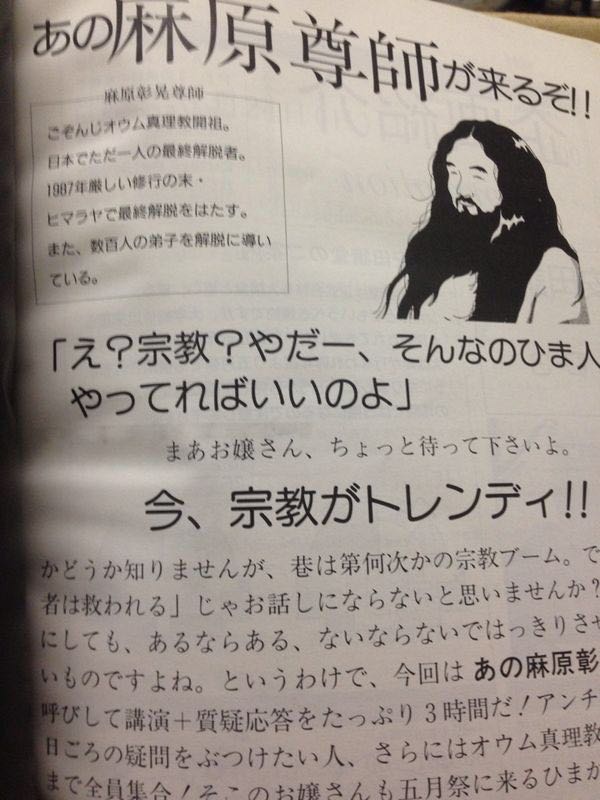 あの麻原尊師が来るぞ!!
麻原彰晃尊師
ごぞんじオウム真理教開祖。
日本でただ一人の最終解脱者。
1987年厳しい修行の末・
ヒマラヤで最終解脱をはたす。
また、数百人の弟子を解脱に導い
ている。
「え?宗教?やだー、そんなのひま人
やってればいいのよ」
まあお嬢さん、ちょっと待って下さいよ。
今、宗教がトレンディ!!
かどうか知りませんが、巷は第何次かの宗教ブーム。で
者は救われる」じゃお話しにならないと思いませんか?
にしても、あるならある、ないならないではっきりさせ
いものですよね。というわけで、今回はあの麻原彰
呼びして講演+質疑応答をたっぷり3時間だ!アンチ
日ごろの疑問をぶつけたい人、さらにはオウム真理教
まで全員集合!そこのお嬢さんも五月祭に来るひまが